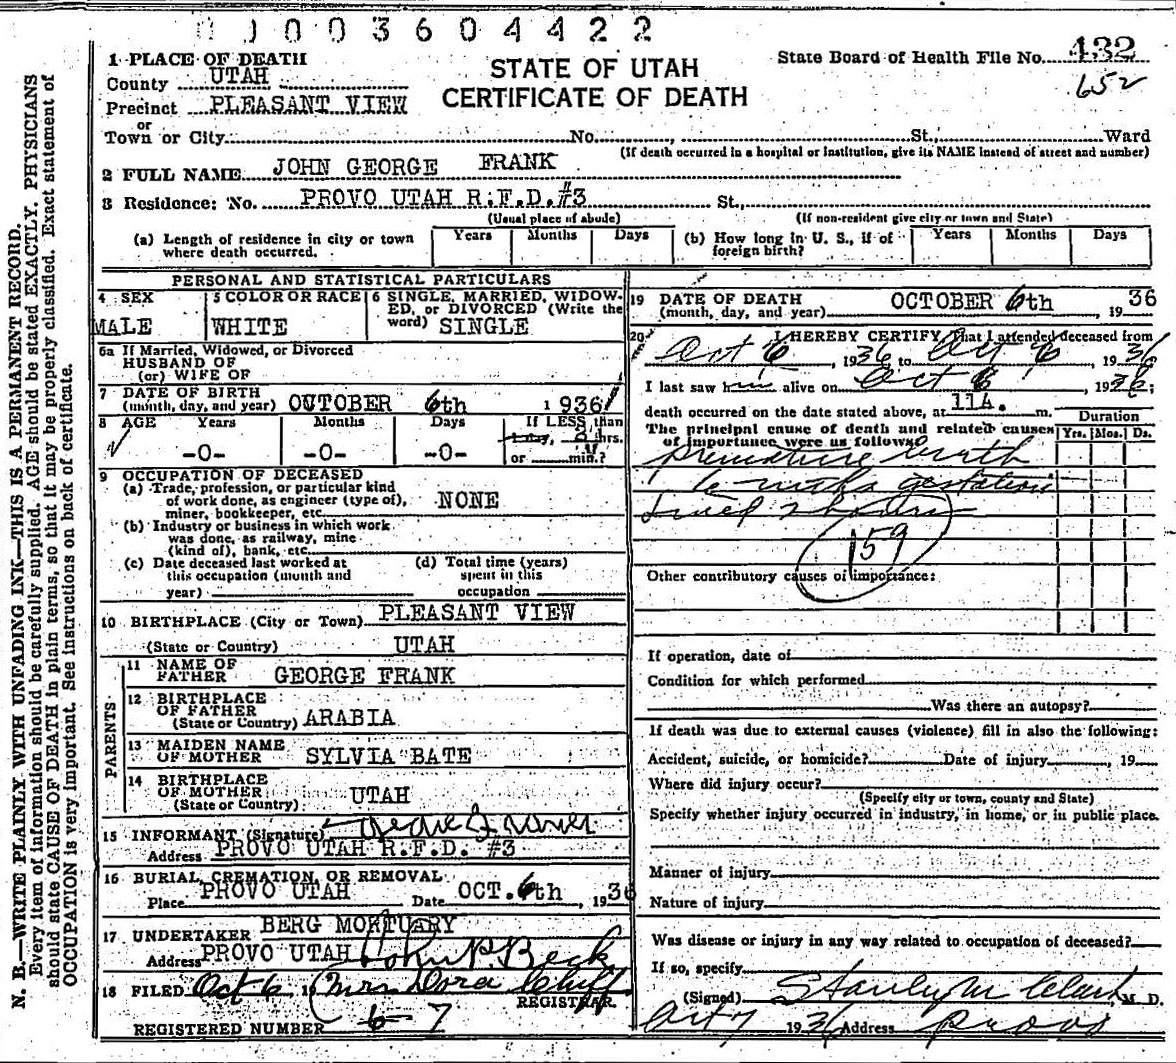 0 0 0 3 6 0 4 4 2 2
1 PLACE OF DEATH
County UTAH
Precinct PLEASANT VIEW
or
Town or City No. St. Ward
STATE OF UTAH
CERTIFICATE OF DEATH
State Board of Health File No. 432
652
(If death occurred in a hospital or institution, give its NAME instead of street and number)
2 FULL NAME JOHN GEORGE FRANK
3 Residence: No. PROVO UTAH R.F.D.#3 St.,
(Usual place of abode) (If non-resident give city or town and State)
(a) Length of residence in city or town where death occurred. Years Months Days
(b) How long in U. S., if of foreign birth? Years Months Days
PERSONAL AND STATISTICAL PARTICULARS
4 SEX
MALE
5 COLOR OR RACE
WHITE
6 SINGLE, MARRIED, WIDOW-
ED, or DIVORCED (Write the
word) SINGLE
6a If Married, Widowed, or Divorced
HUSBAND OF
(or) WIFE OF
7 DATE OF BIRTH
(month, day, and year) OCTOBER 6th 1936
8 AGE Years Months Days If LESS than
-0- -0- -0- 1 day, 2 hrs.
or min.?
9 OCCUPATION OF DECEASED
(a) Trade, profession, or particular kind
of work done, as engineer (type of),
miner, bookkeeper, etc. NONE
(b) Industry or business in which work
was done, as railway, mine
(kind of), bank, etc.
(c) Date deceased last worked at
this occupation (month and
year)
(d) Total time (years)
spent in this
occupation
10 BIRTHPLACE (City or Town) PLEASANT VIEW
(State or Country) UTAH
PARENTS
11 NAME OF
FATHER GEORGE FRANK
12 BIRTHPLACE
OF FATHER
(State or Country) ARABIA
13 MAIDEN NAME
OF MOTHER SYLVIA BATE
14 BIRTHPLACE
OF MOTHER
(State or Country) UTAH
15 INFORMANT (Signature)
Address PROVO UTAH R.F.D. #3
16 BURIAL, CREMATION, OR REMOVAL
Place PROVO UTAH Date OCT. 6th, 1936
17 UNDERTAKER BERG MORTUARY
Address PROVO UTAH John P. Beck
18 FILED Oct 6 1 Mrs Dora Cluff
REGISTRAR.
REGISTERED NUMBER 6-7
19 DATE OF DEATH
(month, day, and year) OCTOBER 6th, 1936
20 I HEREBY CERTIFY, That I attended deceased from
Oct 6, 1936 to Oct 6, 1936
I last saw him alive on Oct 6, 1936;
death occurred on the date stated above, at 11A. m.
Duration
The principal cause of death and related causes Yrs. Mos. Ds.
of importance were as follows:
premature birth
6 months gestation
lived 2 hours
159
Other contributory causes of importance:
If operation, date of
Condition for which performed
Was there an autopsy?
If death was due to external causes (violence) fill in also the following:
Accident, suicide, or homicide? Date of injury , 19
Where did injury occur?
(Specify city or town, county and State)
Specify whether injury occurred in industry, in home, or in public place.
Manner of injury
Nature of injury
Was disease or injury in any way related to occupation of deceased?
If so, specify
(Signed) Stanley M Clark M. D.
Oct 7 1936 Address Provo
N. B.—WRITE PLAINLY WITH UNFADING INK—THIS IS A PERMANENT RECORD.
Every item of information should be carefully supplied. AGE should be stated EXACTLY. PHYSICIANS
should state CAUSE OF DEATH in plain terms, so that it may be properly classified. Exact statement of
OCCUPATION is very important. See instructions on back of certificate.